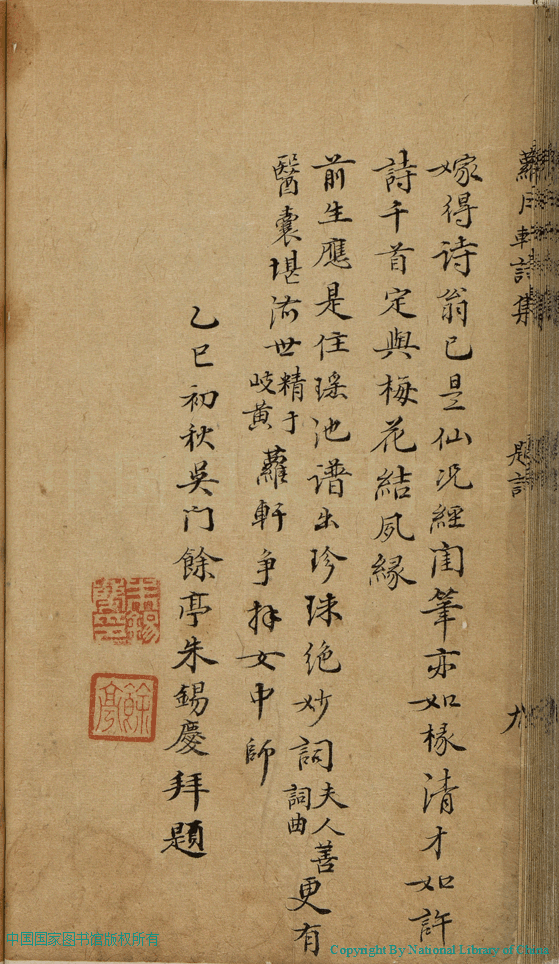 蘿月軒詩集 題詩 九
嫁得诗翁已是仙况經闺筆亦如椽清才如許
詩千首定與梅花結夙緣
前生應是住瑶池谱出珍珠绝妙詞夫人善詞曲更有
醫囊堪济世精于岐黄蘿軒争拜女中師
乙巳初秋吳门餘亭朱錫慶拜題
朱錫慶印
餘亭
中国国家图书馆版权所有
Copyright By National Library of China